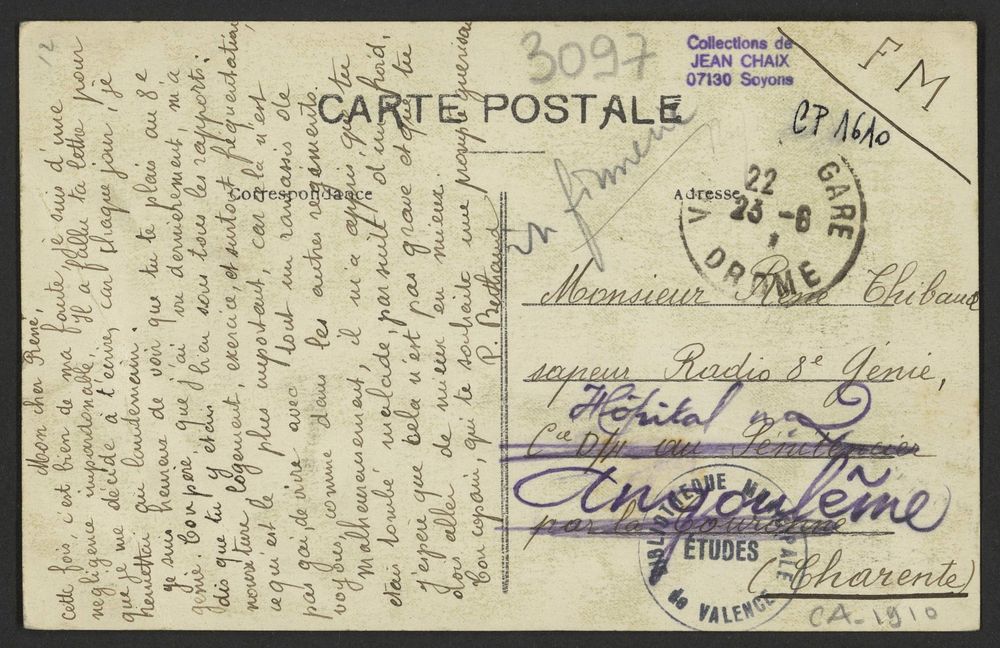 3097
Collections de
JEAN CHAIX
07130 Soyons
F M
CP 1610
CARTE POSTALE
Correspondance
Adresse
Mon cher René,
cette fois, c'est bien de ma faute, je suis d'une
negligence impardonable. Il a fallu ta lettre pour
que je me décide à t'écrire, car chaque jour, je
remettai au landemain.
Je suis heureux de voir que tu te plais au 8e
génie. Ton père que j'ai vu dernierement, m'a
dis que tu y étais bien sous tous les rapports:
nourriture logement, exercice, et surtout fréquentation,
ce qui est le plus important, car là n'est
pas gai, de vivre avec tout un ramassis de
voyous, comme dans les autres regiments.
Malheureusement, il m'a appris que tu
étais tombé malade, par suite d'un froid,
j'espère que cela n'est pas grave et que tu
dois aller de mieux en mieux.
Ton copain, qui te souhaite une prompte guérison
P. Berthaud
22
23 - 6
*
V GARE
DROME
Monsieur René Thibaud
sapeur Radio 8e Génie,
Cie D/11 au Pénitencier
par la Couronne
(Charente)
Hôpital
Angoulême
BIBLIOTHEQUE MUNICIPALE
ÉTUDES
de VALENCE
CA-1910